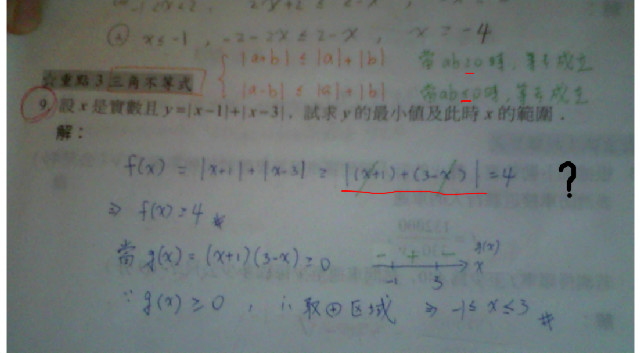 ④ x≤-1 , -2-2x≤2-x , x=-4
☆重點 3 三角不等式
|a+b| ≤ |a|+|b| 當ab≥0時,等号成立
|a-b| ≤ |a|+|b| 當ab≤0時,等号成立
9. 設 x 是實數且 y=|x-1|+|x-3|,試求 y 的最小值及此時 x 的範圍.
解:
f(x) = |x+1|+|x-3| ≥ |(x+1)+(3-x)| = 4 ?
⇒ f(x)≥4
當 g(x)=(x+1)(3-x)≥0
- + - g(x)
-1 3 x
∵ g(x)≥0 , ∴ 取⊕区域 ⇒ -1≤x≤3